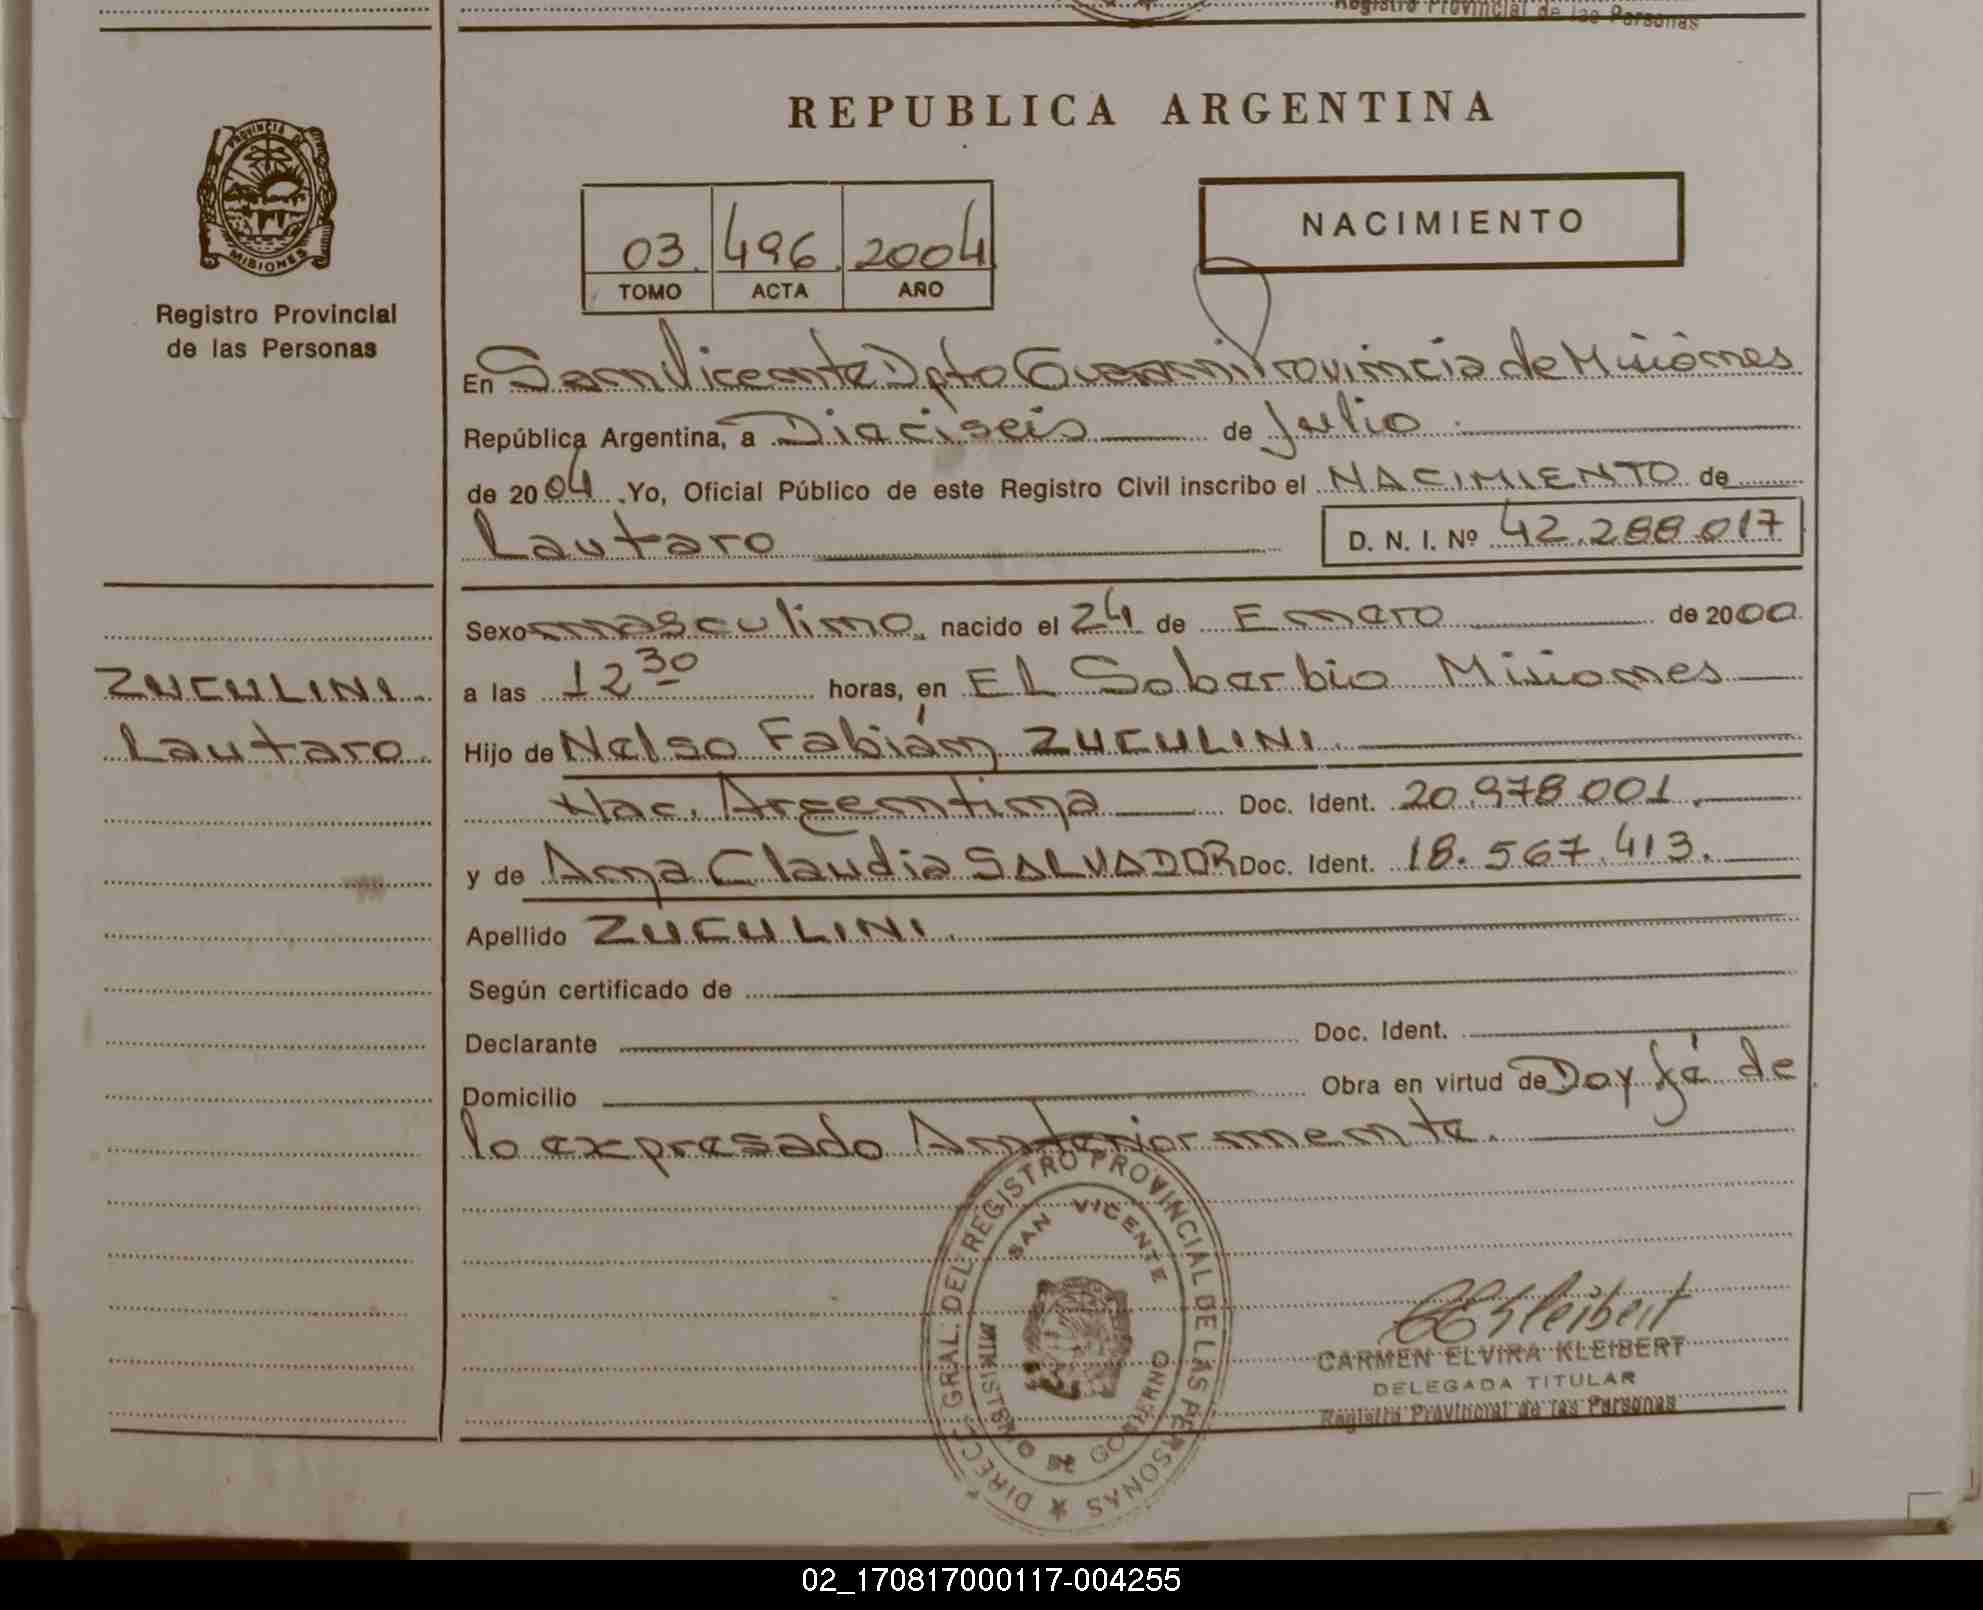 Registro Provincial de las Personas
PROVINCIA DE
MISIONES
Registro Provincial
de las Personas
REPUBLICA ARGENTINA
03 496 2004
TOMO ACTA AÑO
NACIMIENTO
En San Vicente Dpto Guarani Provincia de Misiones
República Argentina, a Dieciseis de Julio
de 2004. Yo, Oficial Público de este Registro Civil inscribo el NACIMIENTO de
Lautaro D. N. I. Nº 42.288.017
Sexo masculino, nacido el 24 de Enero de 2000
ZUCULINI a las 12 30 horas, en EL Soberbio Misiones
Lautaro Hijo de Nelso Fabián ZUCULINI.
Nac. Argentina Doc. Ident. 20.978.001.
y de Ana Claudia SALVADOR Doc. Ident. 18.567.413.
Apellido ZUCULINI.
Según certificado de
Declarante Doc. Ident.
Domicilio Obra en virtud de Doy fé de
lo expresado Anteriormente.
DIRECC. GRAL. DEL REGISTRO PROVINCIAL DE LAS PERSONAS
SAN VICENTE
MINISTERIO DE GOBIERNO
CEKleibert
CARMEN ELVIRA KLEIBERT
DELEGADA TITULAR
Registro Provincial de las Personas
02_170817000117-004255